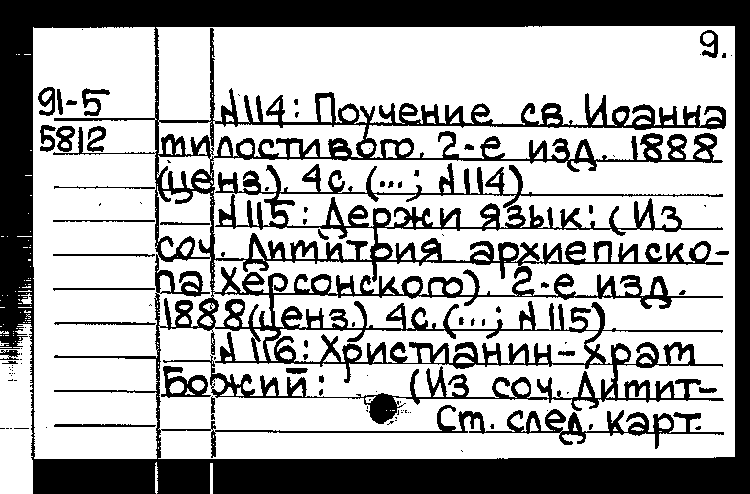 9.
91-5
5812
№114: Поучение св. Иоанна
милостивого. 2-е изд. 1888
(ценз.). 4с. (...; №114).
№115: Держи язык! (Из
соч. Димитрия архиеписко-
па Херсонского). 2-е изд.
1888(ценз.). 4с. (...; №115).
№116: Христианин-храм
Божий: (Из соч. Димит-
См. след. карт.